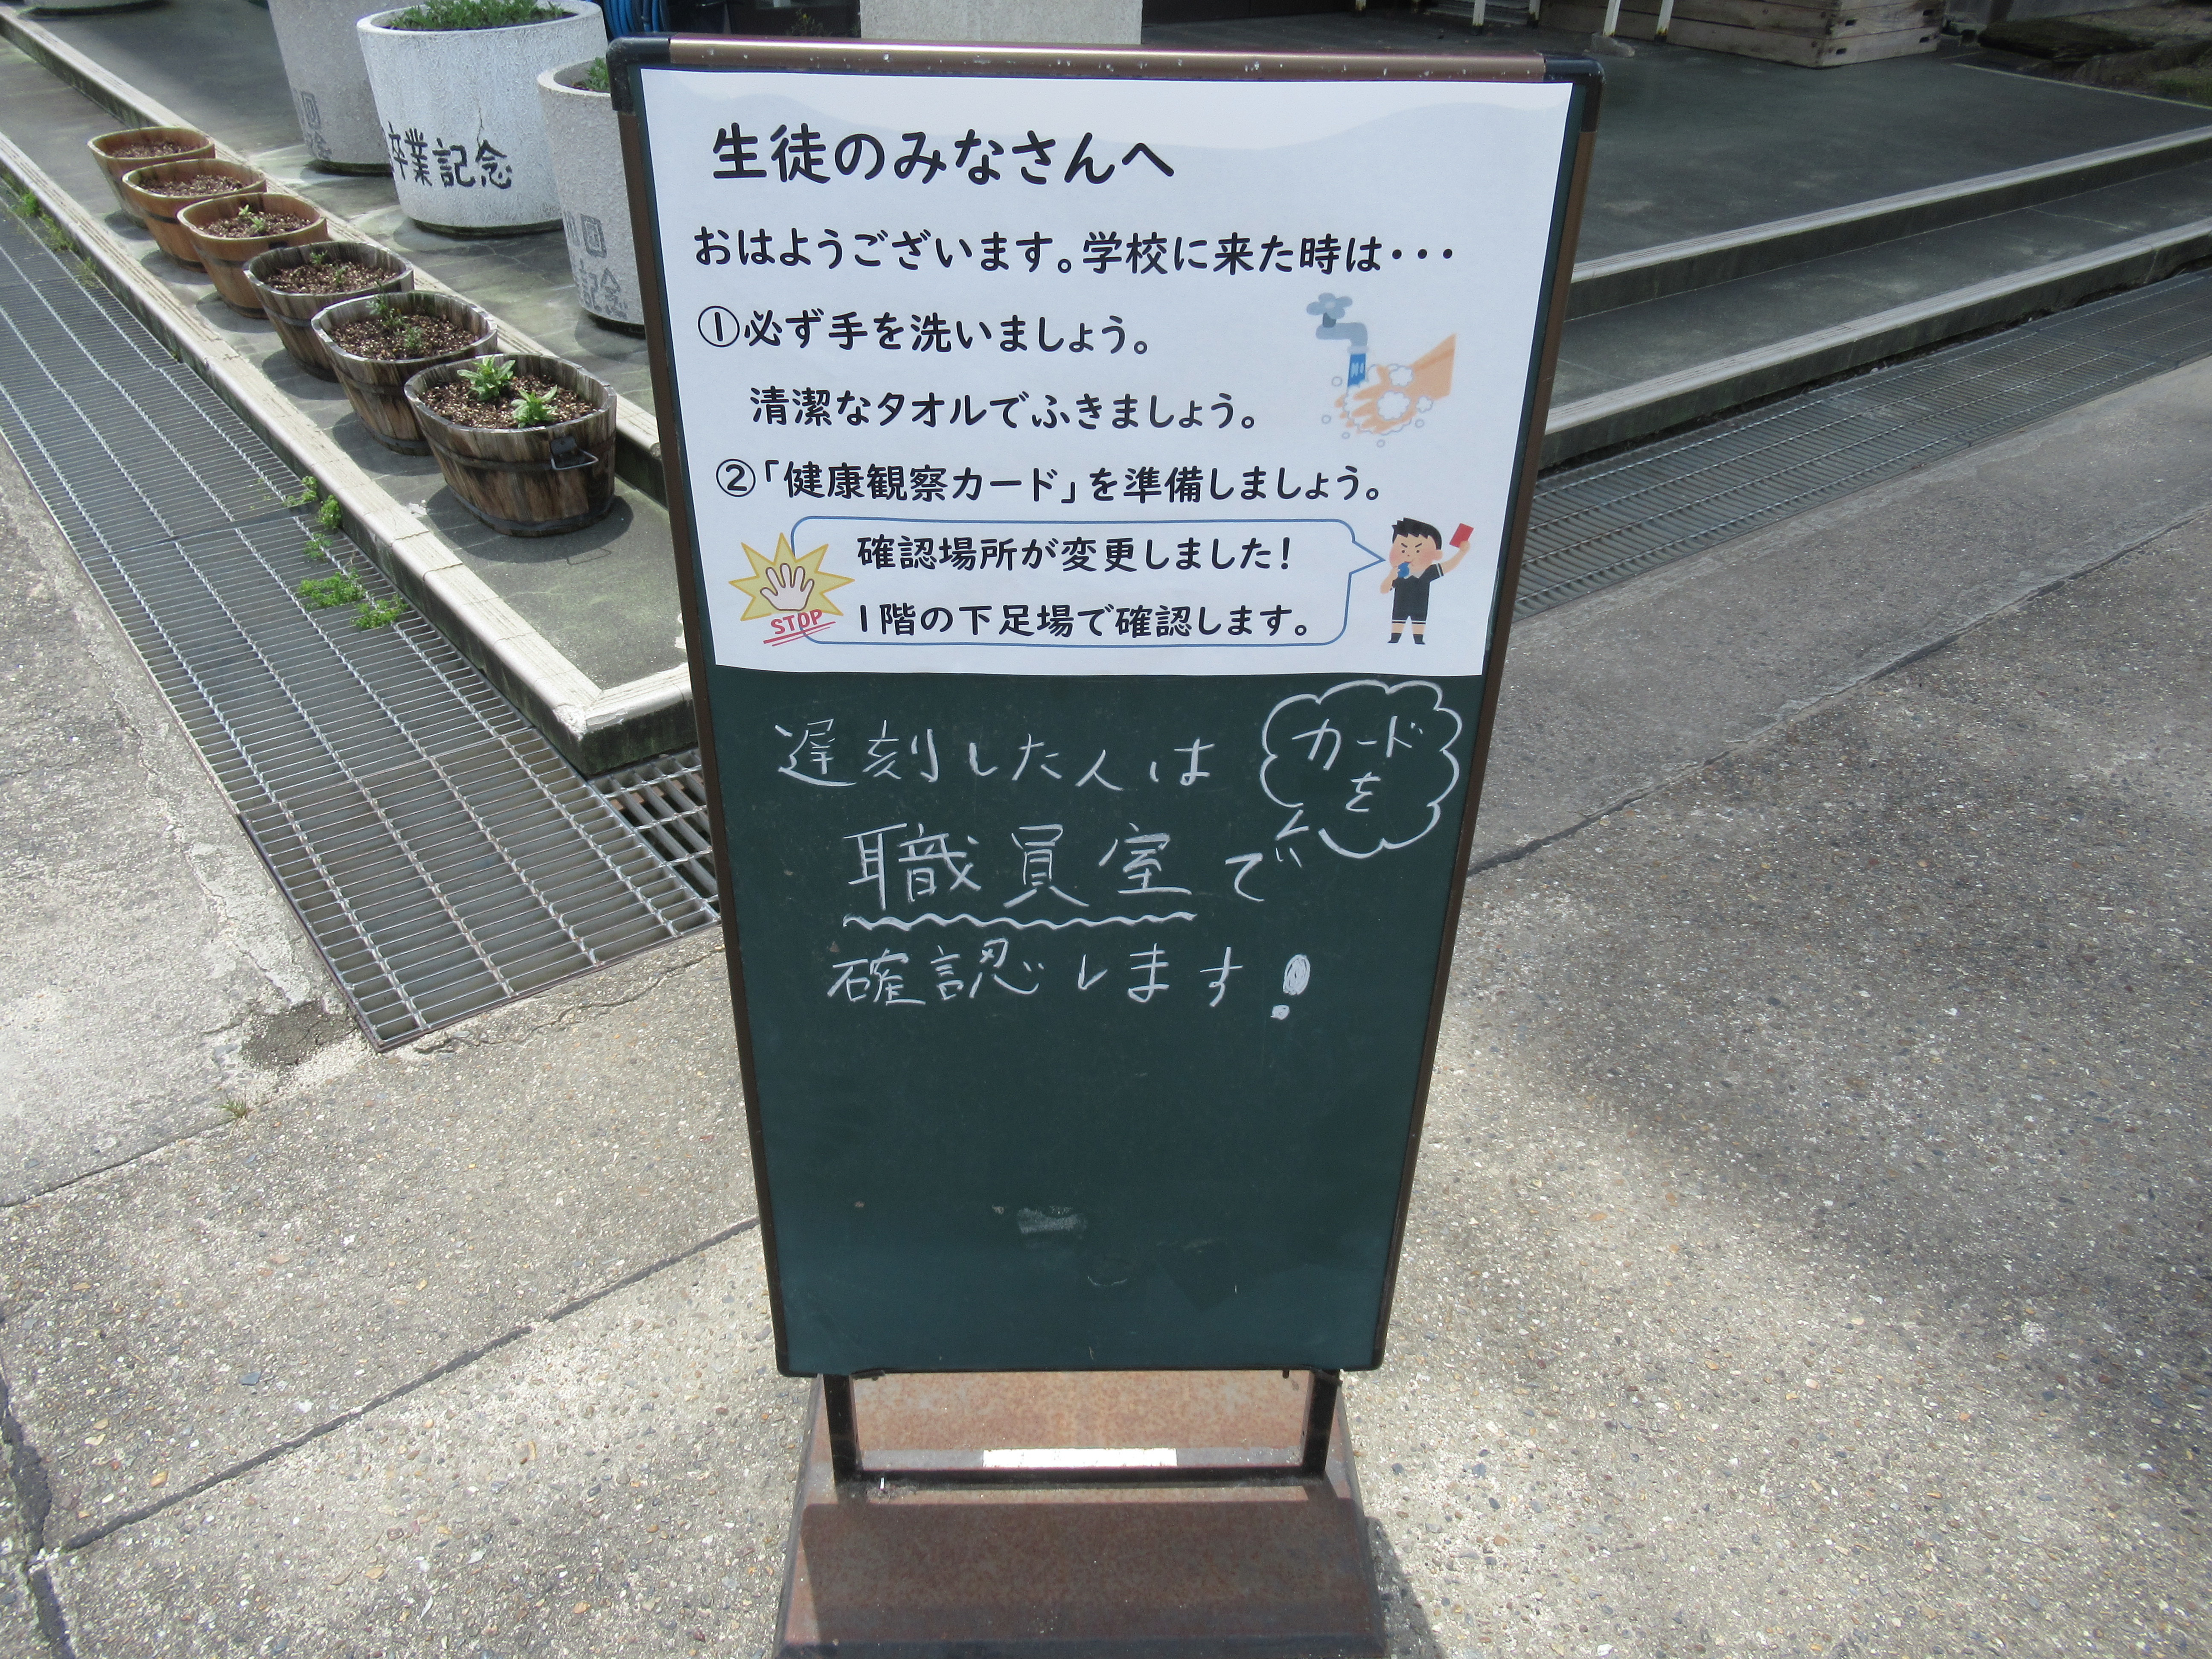 生徒のみなさんへ
おはようございます。学校に来た時は・・・
①必ず手を洗いましょう。
清潔なタオルでふきましょう。
②「健康観察カード」を準備しましょう。
確認場所が変更しました!
1階の下足場で確認します。
STOP
遅刻した人は
カード
を
職員室で
確認します!
卒業記念
記念